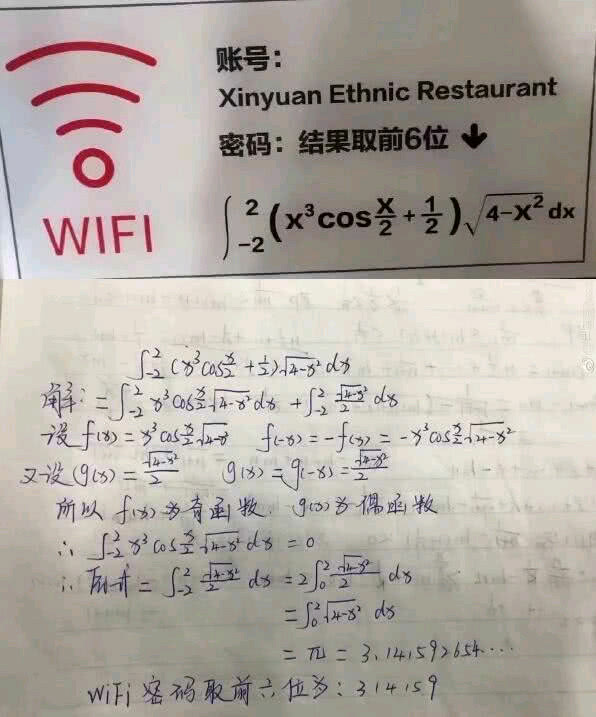 账号：
Xinyuan Ethnic Restaurant
密码：结果取前6位 ↓
WIFI
∫₋₂² (x³cos x/2 + 1/2) √(4-x²) dx
∫₋₂² (x³cos x/2 + 1/2) √(4-x²) dx
解：= ∫₋₂² x³cos x/2 √(4-x²) dx + ∫₋₂² √(4-x²)/2 dx
设 f(x) = x³cos x/2 √(4-x) f(-x) = -f(x) = -x³cos x/2 √(4-x²)
又设 g(x) = √(4-x²)/2 g(x) = g(-x) = √(4-x²)/2
所以 f(x)为奇函数、g(x)为偶函数
∴ ∫₋₂² x³cos x/2 √(4-x²) dx = 0
∴ 原式 = ∫₋₂² √(4-x²)/2 dx = 2∫₀² √(4-x²)/2 dx
= ∫₀² √(4-x²) dx
= π = 3.141592654····
WiFi 密码取前六位为：314159